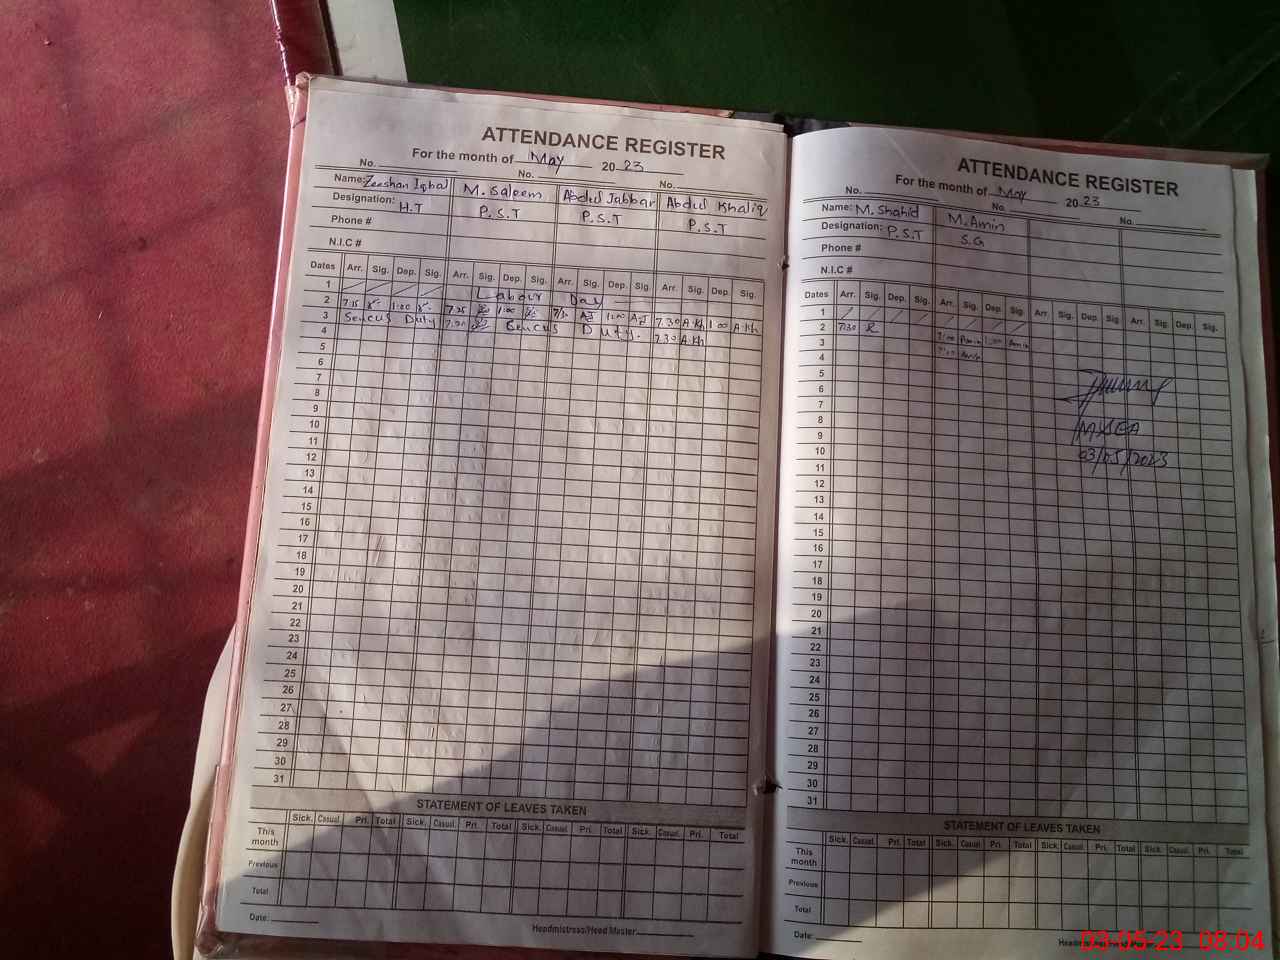 ATTENDANCE REGISTER
For the month of May 20 23
No. No. No.
Name: Zeeshan Iqbal M. Saleem Abdul Jabbar Abdul Khaliq
Designation: H.T P.S.T P.S.T P.S.T
Phone #
N.I.C #
Dates Arr. Sig. Dep. Sig. Arr. Sig. Dep. Sig. Arr. Sig. Dep. Sig. Arr. Sig. Dep. Sig.
1 Labour Day
2 7.25 1:00 7.25 1:00 AJ 1:00 AJ 7.30 A.Kh 1:00 A.Kh
3 Sencus Duty Sencus Duty. 7.30 A.Kh
4
5
6
7
8
9
10
11
12
13
14
15
16
17
18
19
20
21
22
23
24
25
26
27
28
29
30
31
STATEMENT OF LEAVES TAKEN
Sick. Casual. Pri. Total Sick. Casual. Pri. Total Sick. Casual. Pri. Total Sick. Casual. Pri. Total
This month
Previous
Total
Date:
Headmistress/Head Master
ATTENDANCE REGISTER
For the month of May 20 23
No. No. No.
Name: M. Shahid M. Amin
Designation: P.S.T S.G
Phone #
N.I.C #
Dates Arr. Sig. Dep. Sig. Arr. Sig. Dep. Sig. Arr. Sig. Dep. Sig. Arr. Sig. Dep. Sig.
1
2 7:30 R 7:00 Amin 1:00 Amin
3 7:00 Amin
4
5
6
7
8
9
10
11
12
13
14
15
16
17
18
19
20
21
22
23
24
25
26
27
28
29
30
31
MSEA
03/05/2023
STATEMENT OF LEAVES TAKEN
Sick. Casual. Pri. Total Sick. Casual. Pri. Total Sick. Casual. Pri. Total Sick. Casual. Pri. Total
This month
Previous
Total
Date:
03-05-23 08:04